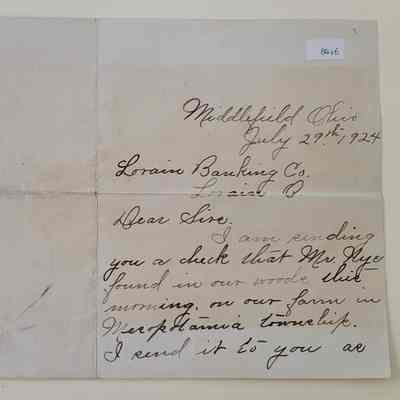 Middlefield Ohio
July 29th, 1924
Lorain Banking Co.
Lorain O
Dear Sire.
I am sending
you a check that Mr. Nye
found in our woods this
morning. on our farm in
Mesopotamia township.
I send it to you as